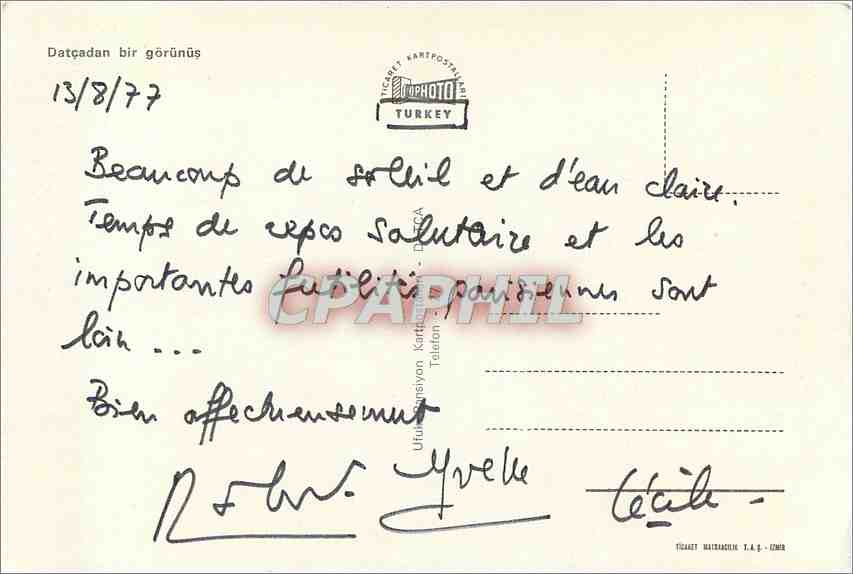 Datçadan bir görünüş
TİCARET KARTPOSTALLARI
PHOTO
TURKEY
13/8/77
Beaucoup de soleil et d'eau claire.
Temps de repos salutaire et les
importantes futilités parisiennes sont
loin ...
Bien affectueusement
Robert. Yvette Cécile -
CPAPHIL
Ufuk Pansiyon Kartpostalları - DATÇA
Telefon
TİCARET MATBAACILIK T.A.Ş. - İZMİR